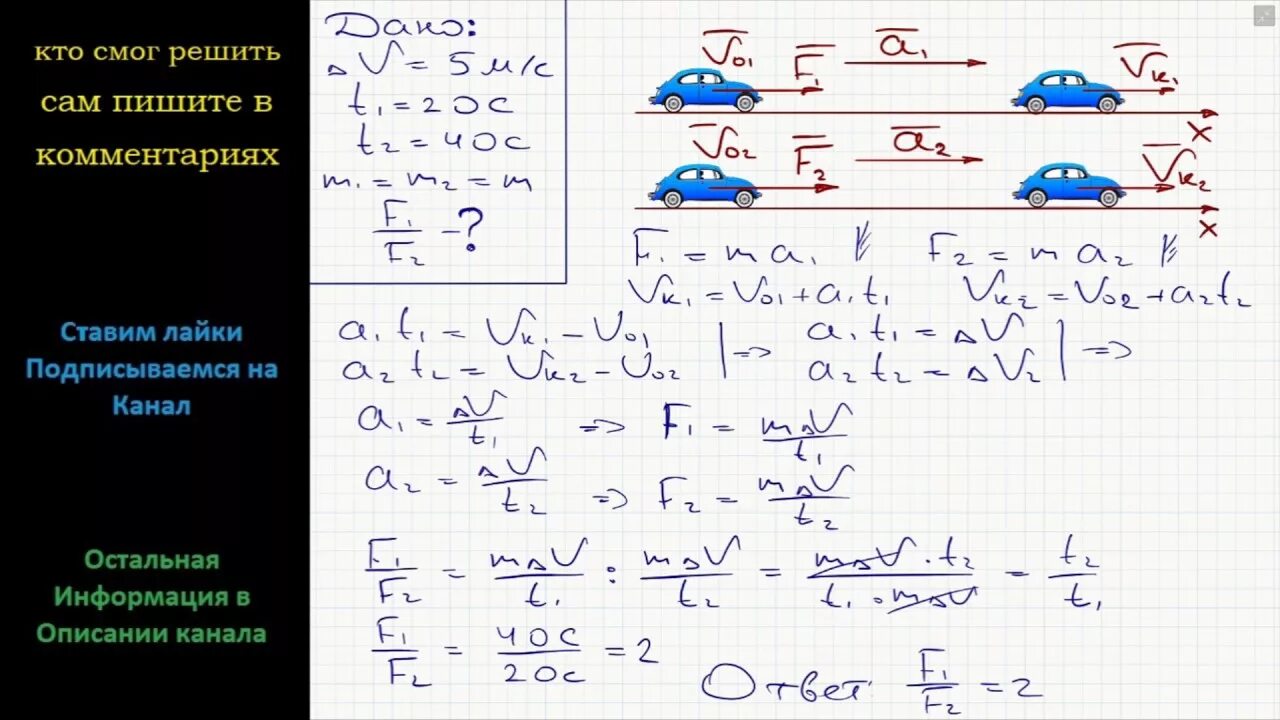 кто смог решить
сам пишите в
комментариях
Ставим лайки
Подписываемся на
Канал
Остальная
Информация в
Описании канала
Дано:
ΔV = 5 м/с
t₁ = 20 с
t₂ = 40 с
m₁ = m₂ = m
F₁/F₂ - ?
V̅₀₁ F̅₁ a̅₁ V̅к₁
x
V̅₀₂ F̅₂ a̅₂ V̅к₂
x
F₁ = m a₁ F₂ = m a₂
Vк₁ = V₀₁ + a₁t₁ Vк₂ = V₀₂ + a₂t₂
a₁t₁ = Vк₁ - V₀₁ | => a₁t₁ = ΔV | =>
a₂t₂ = Vк₂ - V₀₂ | a₂t₂ = ΔV₂ |
a₁ = ΔV/t₁ => F₁ = mΔV/t₁
a₂ = ΔV/t₂ => F₂ = mΔV/t₂
F₁/F₂ = mΔV/t₁ : mΔV/t₂ = mΔV · t₂/t₁ · mΔV = t₂/t₁
F₁/F₂ = 40с/20с = 2
Ответ: F₁/F₂ = 2